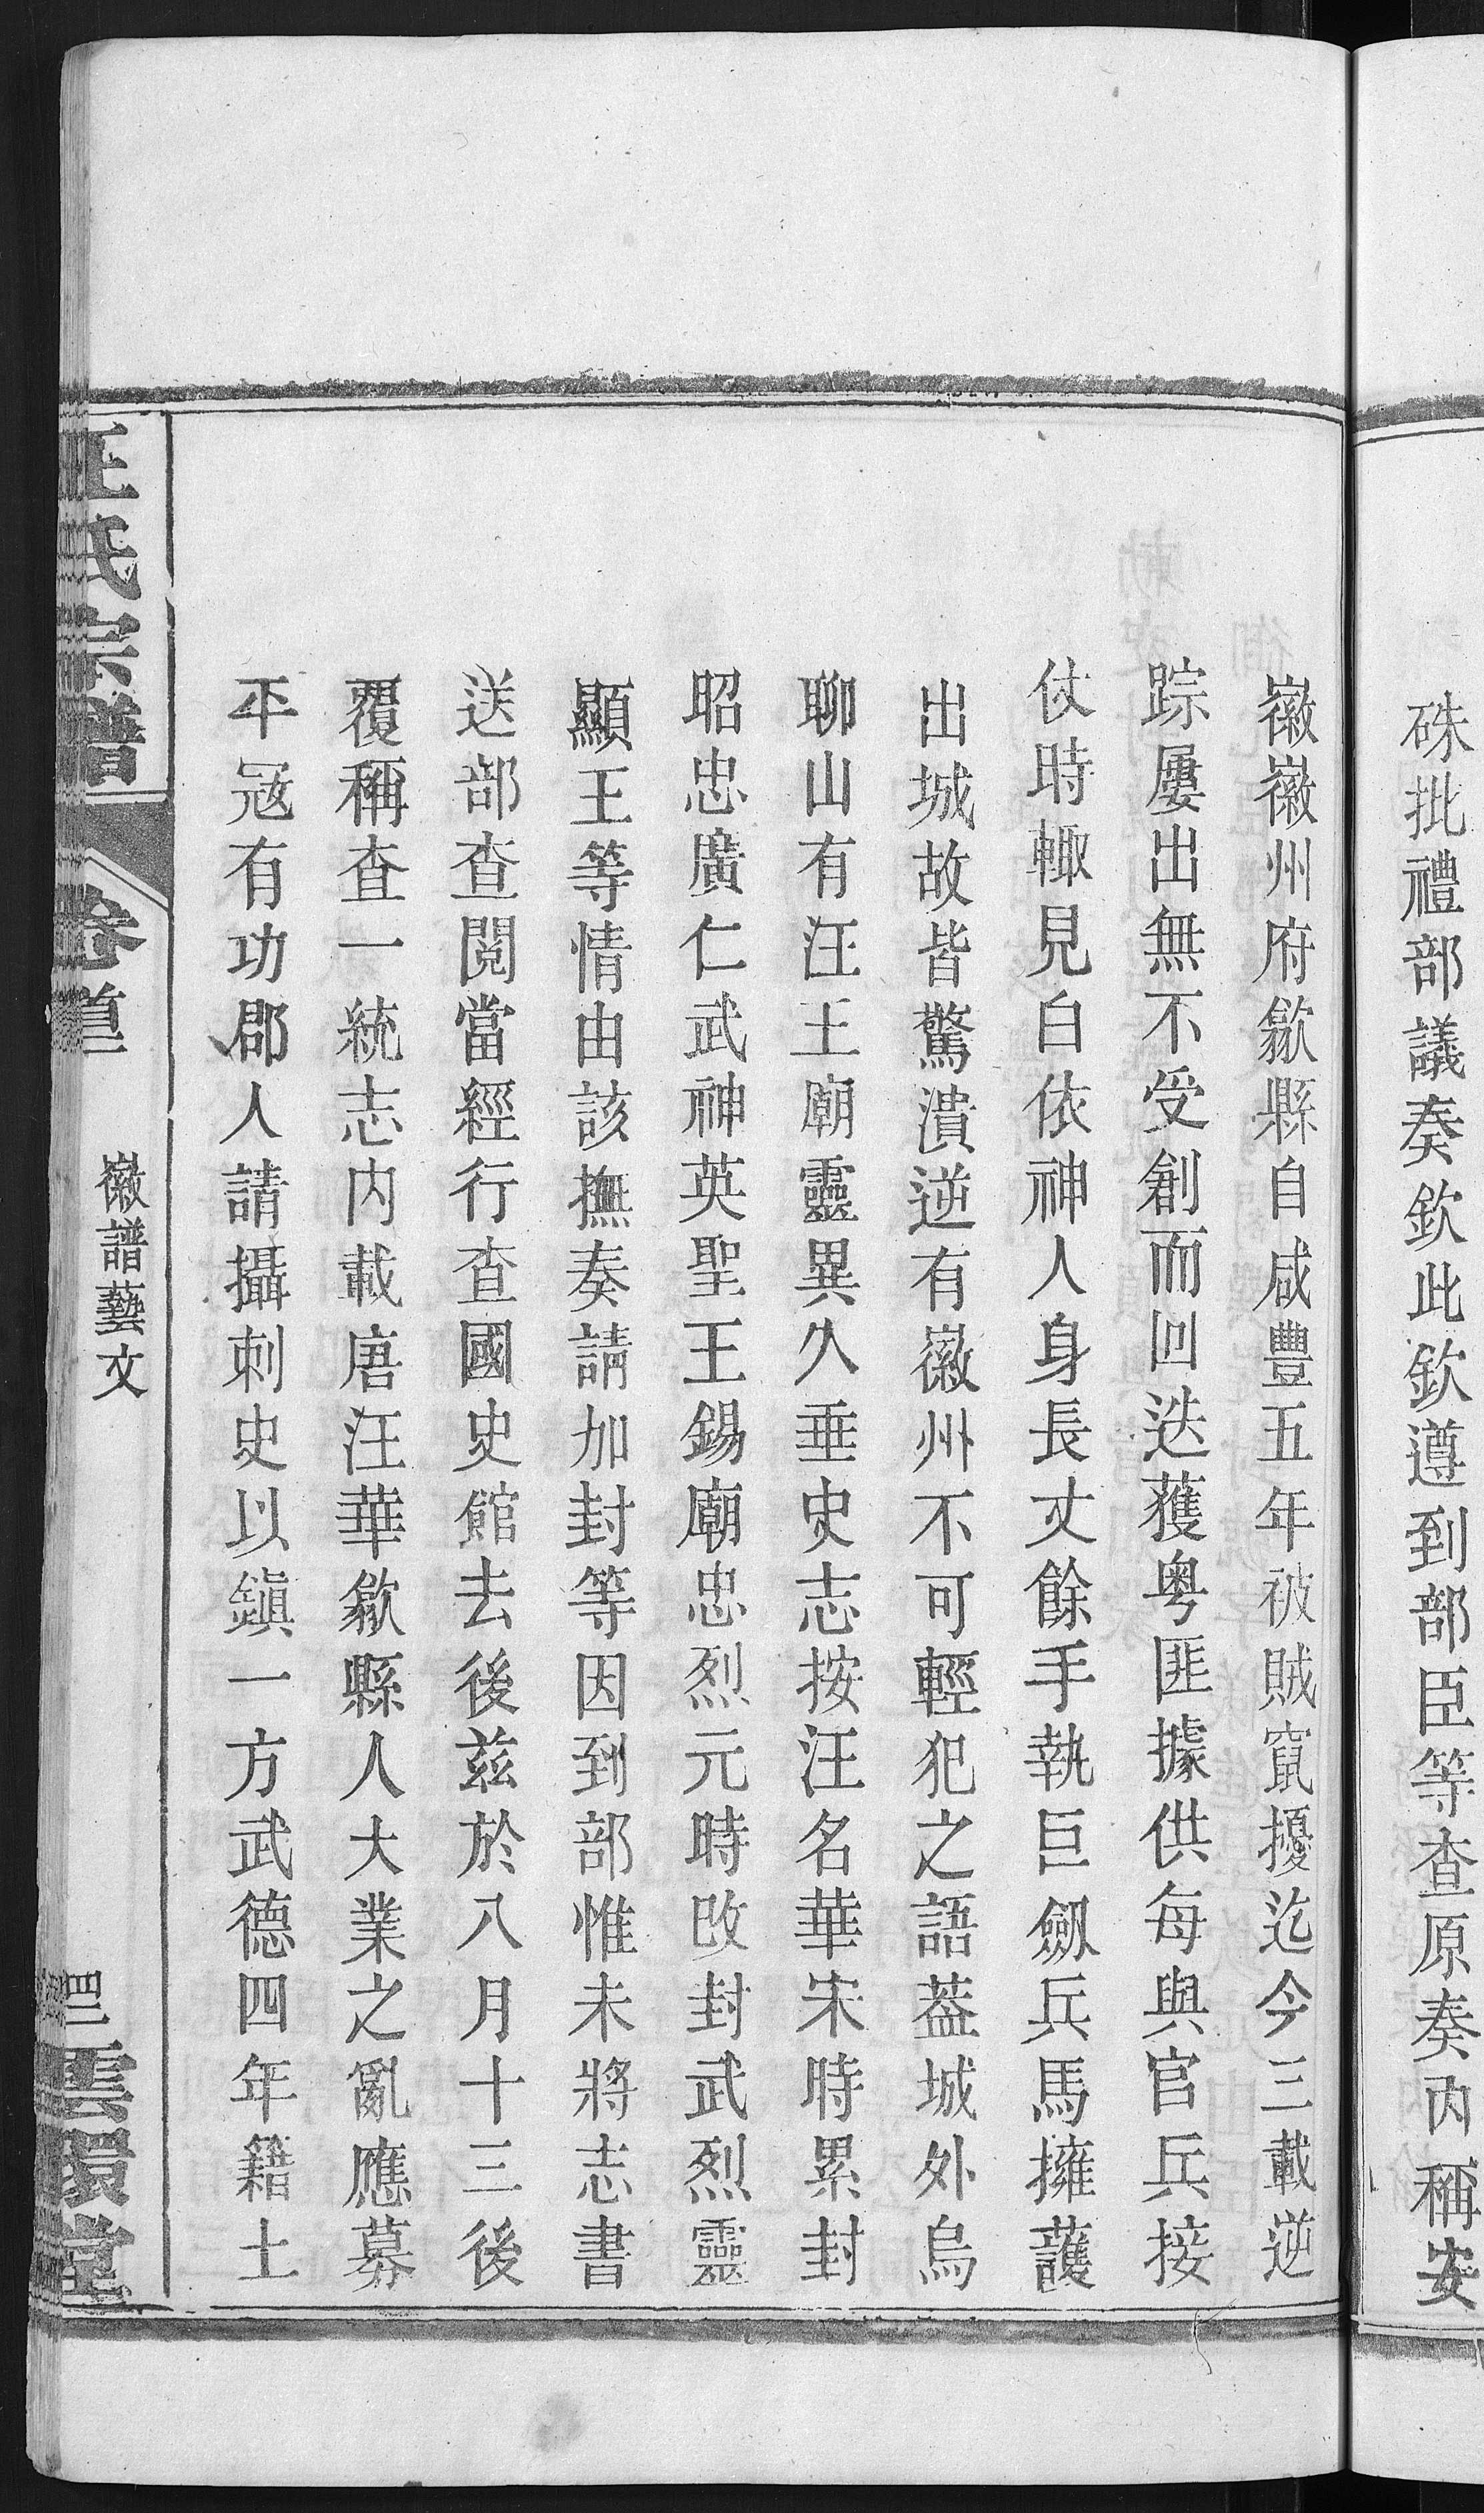 硃批禮部議奏欽此欽遵到部臣等查原奏內稱安
徽徽州府歙縣自咸豐五年被賊竄擾迄今三載逆
踪屢出無不受創而回迭獲粵匪據供每與官兵接
仗時輙見白依神人身長丈餘手執巨劔兵馬擁護
出城故皆驚潰逆有徽州不可輕犯之語葢城外烏
聊山有汪王廟靈異久垂史志按汪名華宋時累封
昭忠廣仁武神英聖王錫廟忠烈元時改封武烈靈
顯王等情由該撫奏請加封等因到部惟未將志書
送部查閱當經行查國史館去後茲於八月十三後
覆稱查一統志內載唐汪華歙縣人大業之亂應募
平寇有功郡人請攝刺史以鎭一方武德四年籍土
汪氏宗譜 卷首 徽譜藝文 雲環堂